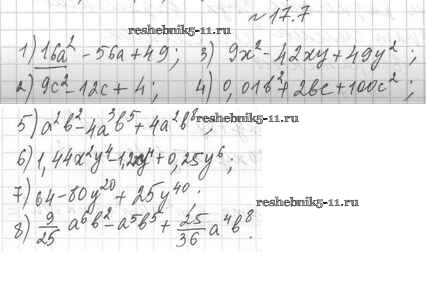 №17.7
reshebnik5-11.ru
1) 16a² - 56a + 49; 3) 9x² - 42xy + 49y²;
2) 9c² - 12c + 4; 4) 0,01b² + 2bc + 100c²;
5) a²b² - 4a³b⁵ + 4a²b⁸;
reshebnik5-11.ru
6) 1,44x²y⁴ - 1,2xy⁴ + 0,25y⁶;
7) 64 - 80y²⁰ + 25y⁴⁰;
reshebnik5-11.ru
8) 9/25 a⁶b² - a⁵b⁵ + 25/36 a⁴b⁸.